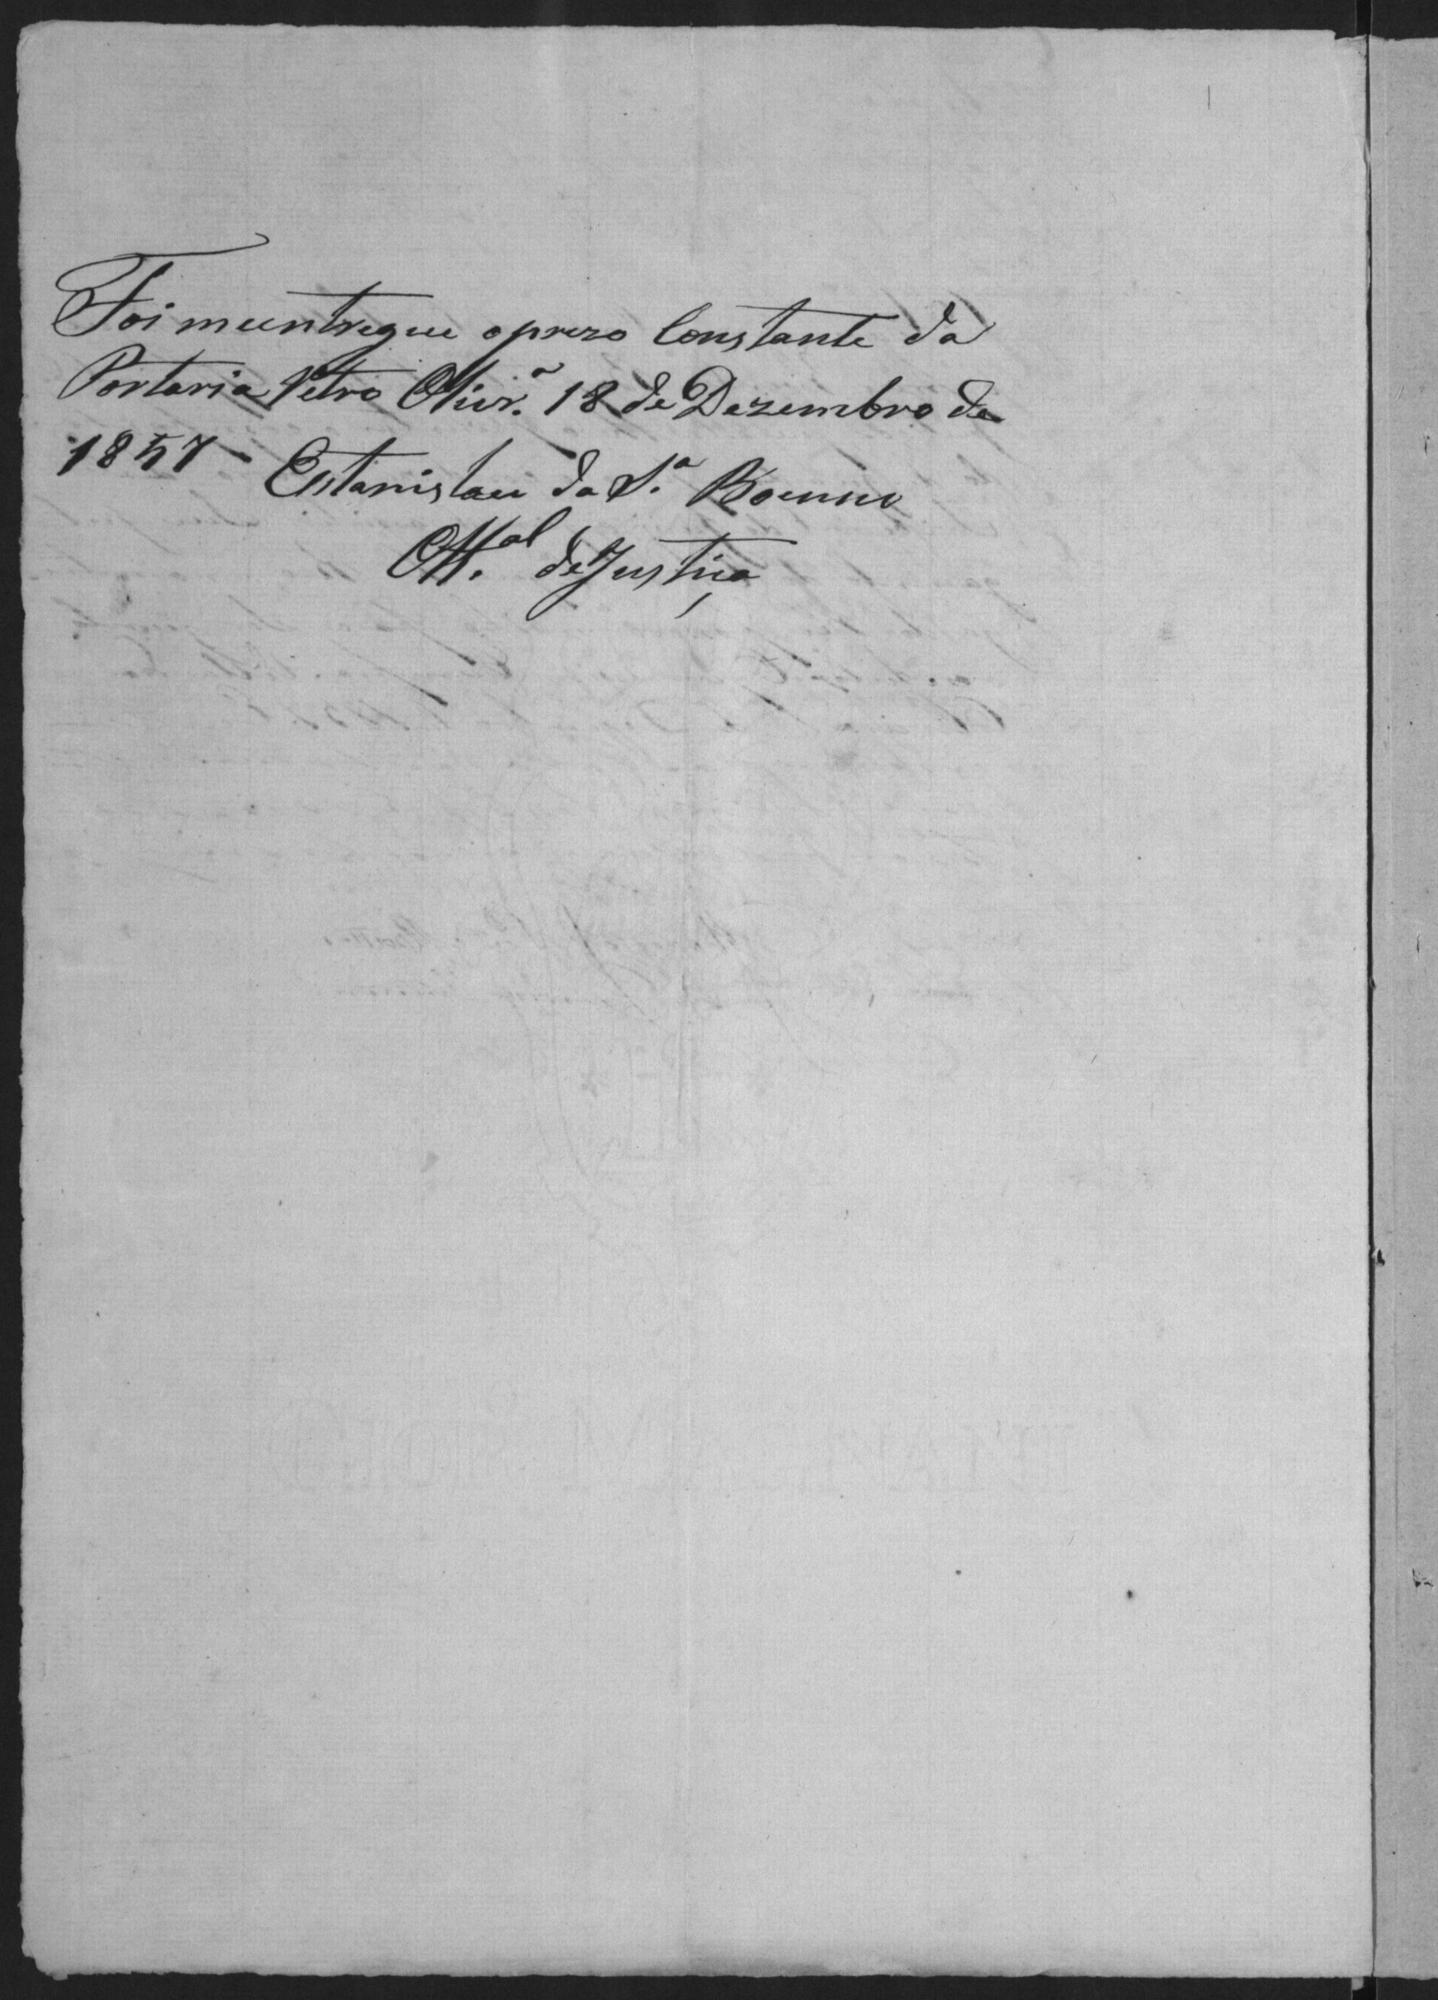 Foi meentregue oprezo Constante da
Portaria Retro Olivr.ª 18 de Dezembro de
1857
Estanislau da S.ª Boenno
Off.al de Justiça